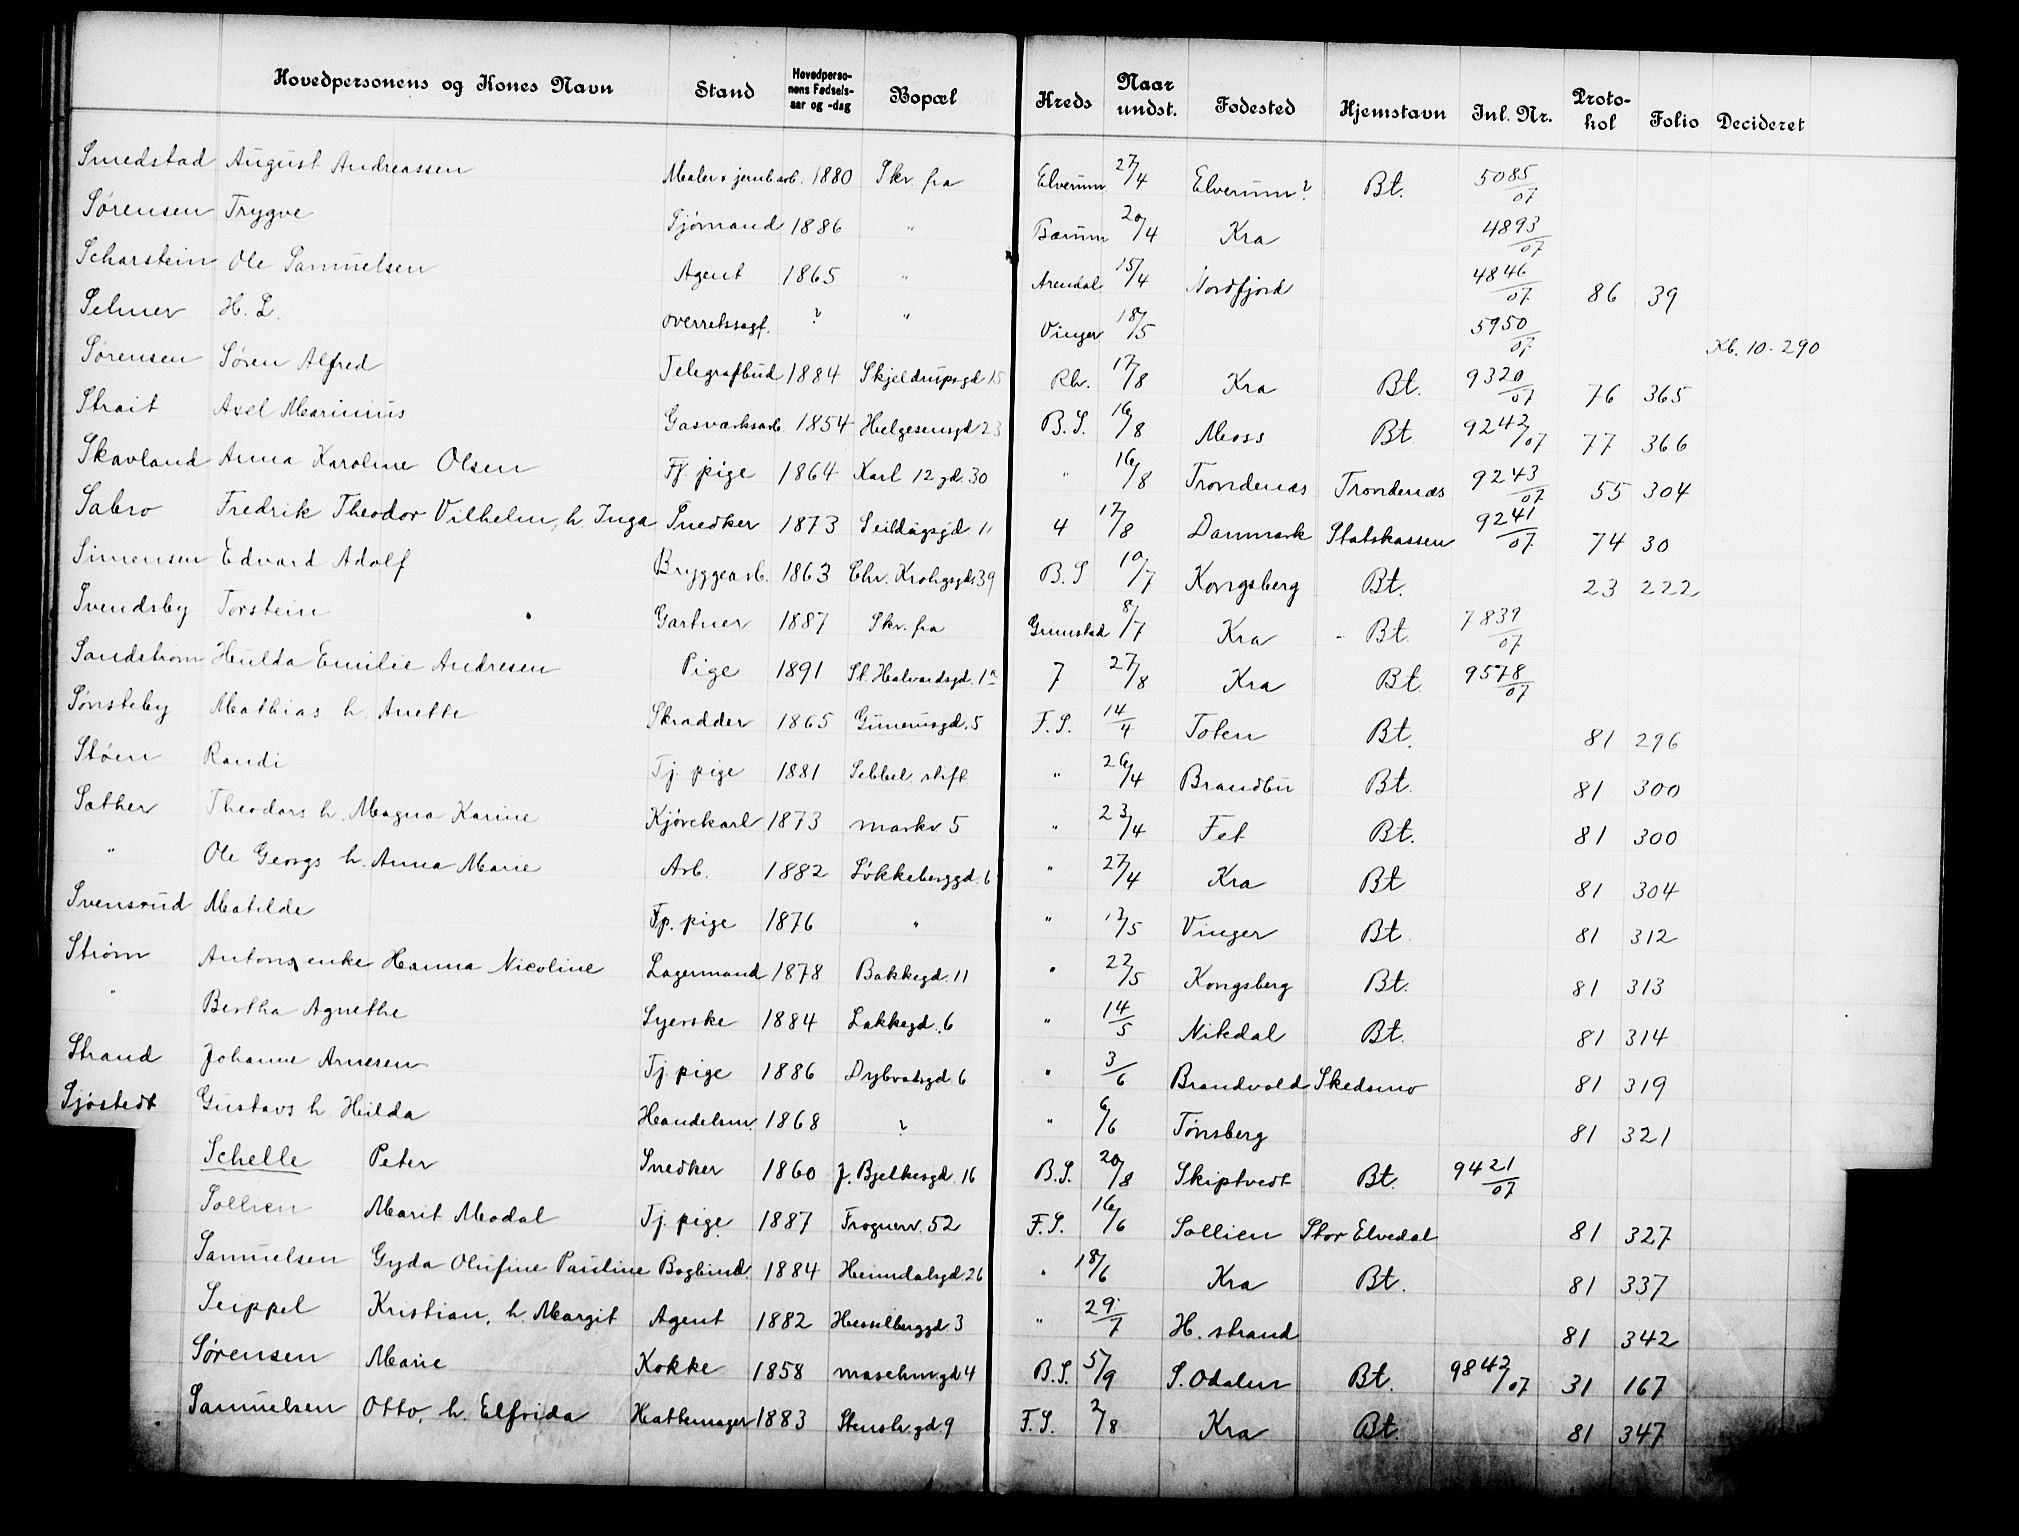 Hovedpersonens og Kones Navn Stand Hovedpersonens Fødselsaar og -dag Bopæl Kreds Naar undst. Fødested Hjemstavn Inl. Nr. Protokol Folio Decideret
Smedstad August Andreassen Maler & jernb arb. 1880 Skr. fra Elverum 27/4 Elverum? Bt. 5085/07
Sørensen Trygve Sjømand 1886 " Bærum 20/4 Kra 4893/07
Scharstein Ole Samuelsen Agent 1865 " Arendal 15/4 Nordfjord 4846/07 86 39
Selmer H. L. overretssagf. ? " Vinger 18/5 5950/07 Kb. 10-290
Sørensen Søren Alfred Telegrafbud 1884 Skjeldrupsgd 15 Rhr. 17/8 Kra Bt. 9320/07 76 365
Strait Axel Marinius Gasværksarb. 1854 Helgesensgd 23 B.S. 16/8 Moss Bt. 9242/07 77 366
Skavland Anna Karoline Olsen Tj. pige 1864 Karl 12 gd. 30 " 16/8 Trondenæs Trondenæs 9243/07 55 304
Sabro Fredrik Theodor Vilhelm, h. Inga Snedker 1873 Seildugsgd 11 4 17/8 Danmark Statskassen 9241/07 74 30
Simensen Edvard Adolf Bryggearb. 1863 Chr. Krohgsgd 39 B.S 10/7 Kongsberg Bt. 23 222
Svendsby Torstein Gartner 1887 Skr. fra Grimstad 8/7 Kra - Bt. 7839/07
Sandstrøm Hulda Emilie Andresen Pige 1891 St. Halvardsgd. 1a 7 27/8 Kra Bt. 9578/07
Sønsteby Mathias h. Anette Skrædder 1865 Gunerusgd. 5 F.S. 14/4 Toten Bt. 81 296
Støen Randi Tj. pige 1881 Sebbel. stift " 26/4 Brandbu Bt. 81 300
Sæther Theodors h. Magna Karine Kjørekarl 1873 markv 5 " 23/4 Fet Bt. 81 300
" Ole Georgs h. Anna Marie Arb. 1882 Løkkeberggd. 6 " 27/4 Kra Bt 81 304
Svensrud Matilde Tp. pige 1876 " " /5 Vinger Bt 81 312
Strøm Antons enke Hanna Nicoline Lagermand 1878 Bakkegd. 11 " 22/5 Kongsberg Bt. 81 313
" Bertha Agnethe Syerske 1884 Lakkegd. 6 " 14/5 Nitedal Bt. 81 314
Strand Johanne Arnesen Tj. pige 1886 Dybvadsgd. 6 " 3/6 Brandvold Skedsmo 81 319
Sjøstedt Gustavs h Hilda Handelsm. 1868 ? " 6/6 Tønsberg 81 321
Schelle Peter Snedker 1860 J. Bjelkesgd. 16 B.S. 20/8 Skiptvedt Bt. 9421/07
Sollien Marit Modal Tj. pige 1887 Frognerv. 52 F.S. 16/6 Sollien Stor Elvedal 81 327
Samuelsen Gyda Olufine Pauline Bogbind. 1884 Heimdalsgd. 26 " 18/6 Kra Bt. 81 337
Seippel Kristian, h. Margit Agent 1882 Hesselberggd. 3 " 29/7 H. strand 81 342
Sørensen Marie Kokke 1858 maschingd 4 B.S. 5/9 S. Odalen Bt. 9842/07 31 167
Samuelsen Otto, h. Elfrida Hattemager 1883 Stensb. gd. 9 F.S. 2/8 Kra Bt. 81 347